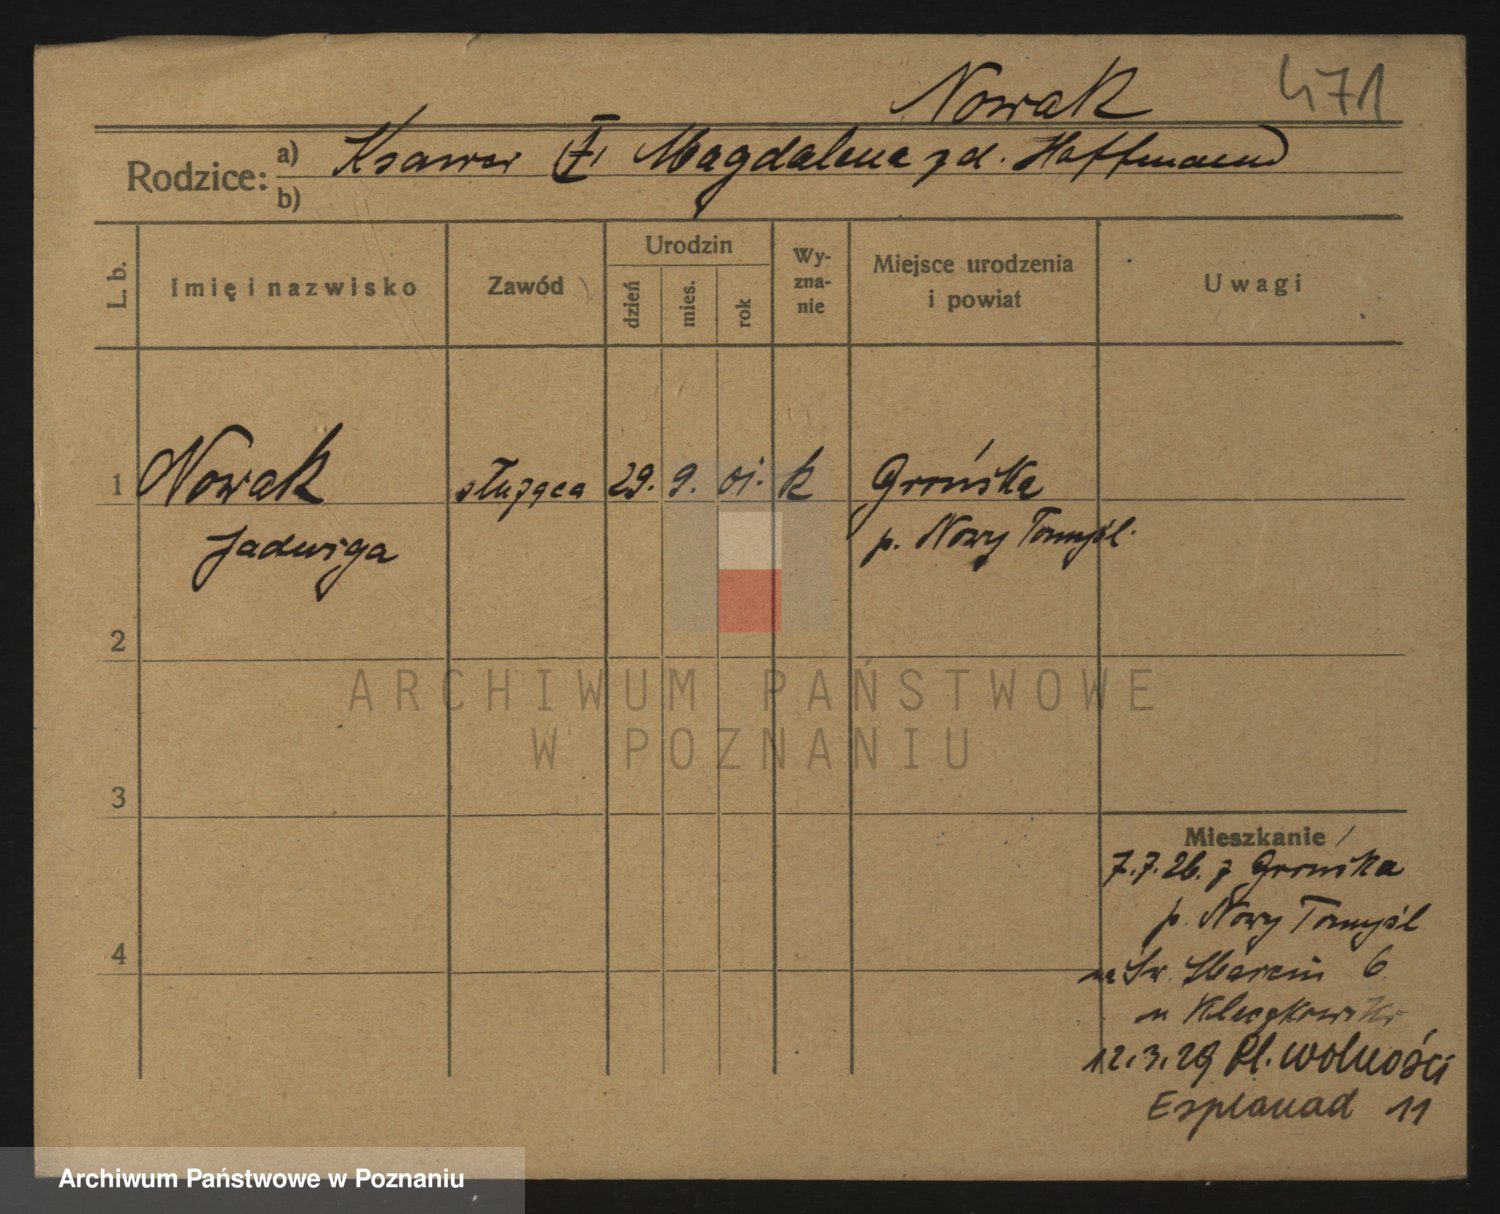 Nowak 471
Rodzice: a) Ksawer Magdalena zd. Hoffmann
b)
L. b. Imię i nazwisko Zawód Urodzin dzień mies. rok Wy-zna-nie Miejsce urodzenia i powiat Uwagi
1 Nowak służąca 29. 9. 01. k Grońska
Jadwiga p. Nowy Tomyśl.
2
ARCHIWUM PAŃSTWOWE
W POZNANIU
3
Mieszkanie
7.7.26. z Grońska
p. Nowy Tomyśl
4
na Św. Marcin 6
u
12.3.29 Pl. Wolności
Esplanad 11
Archiwum Państwowe w Poznaniu